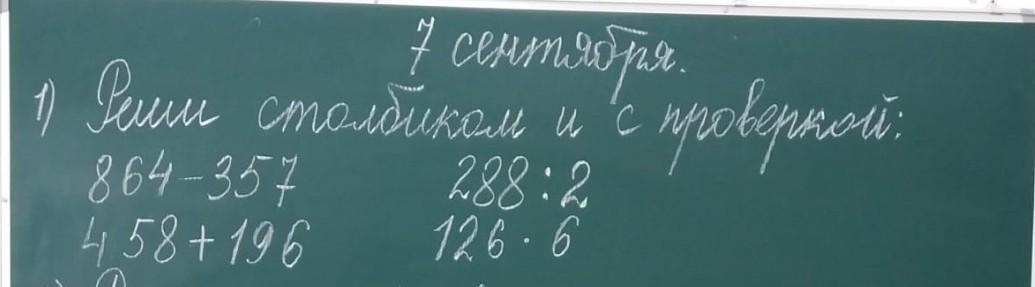 7 сентября.
1) Реши столбиком и с проверкой:
864-357 288:2
458+196 126·6